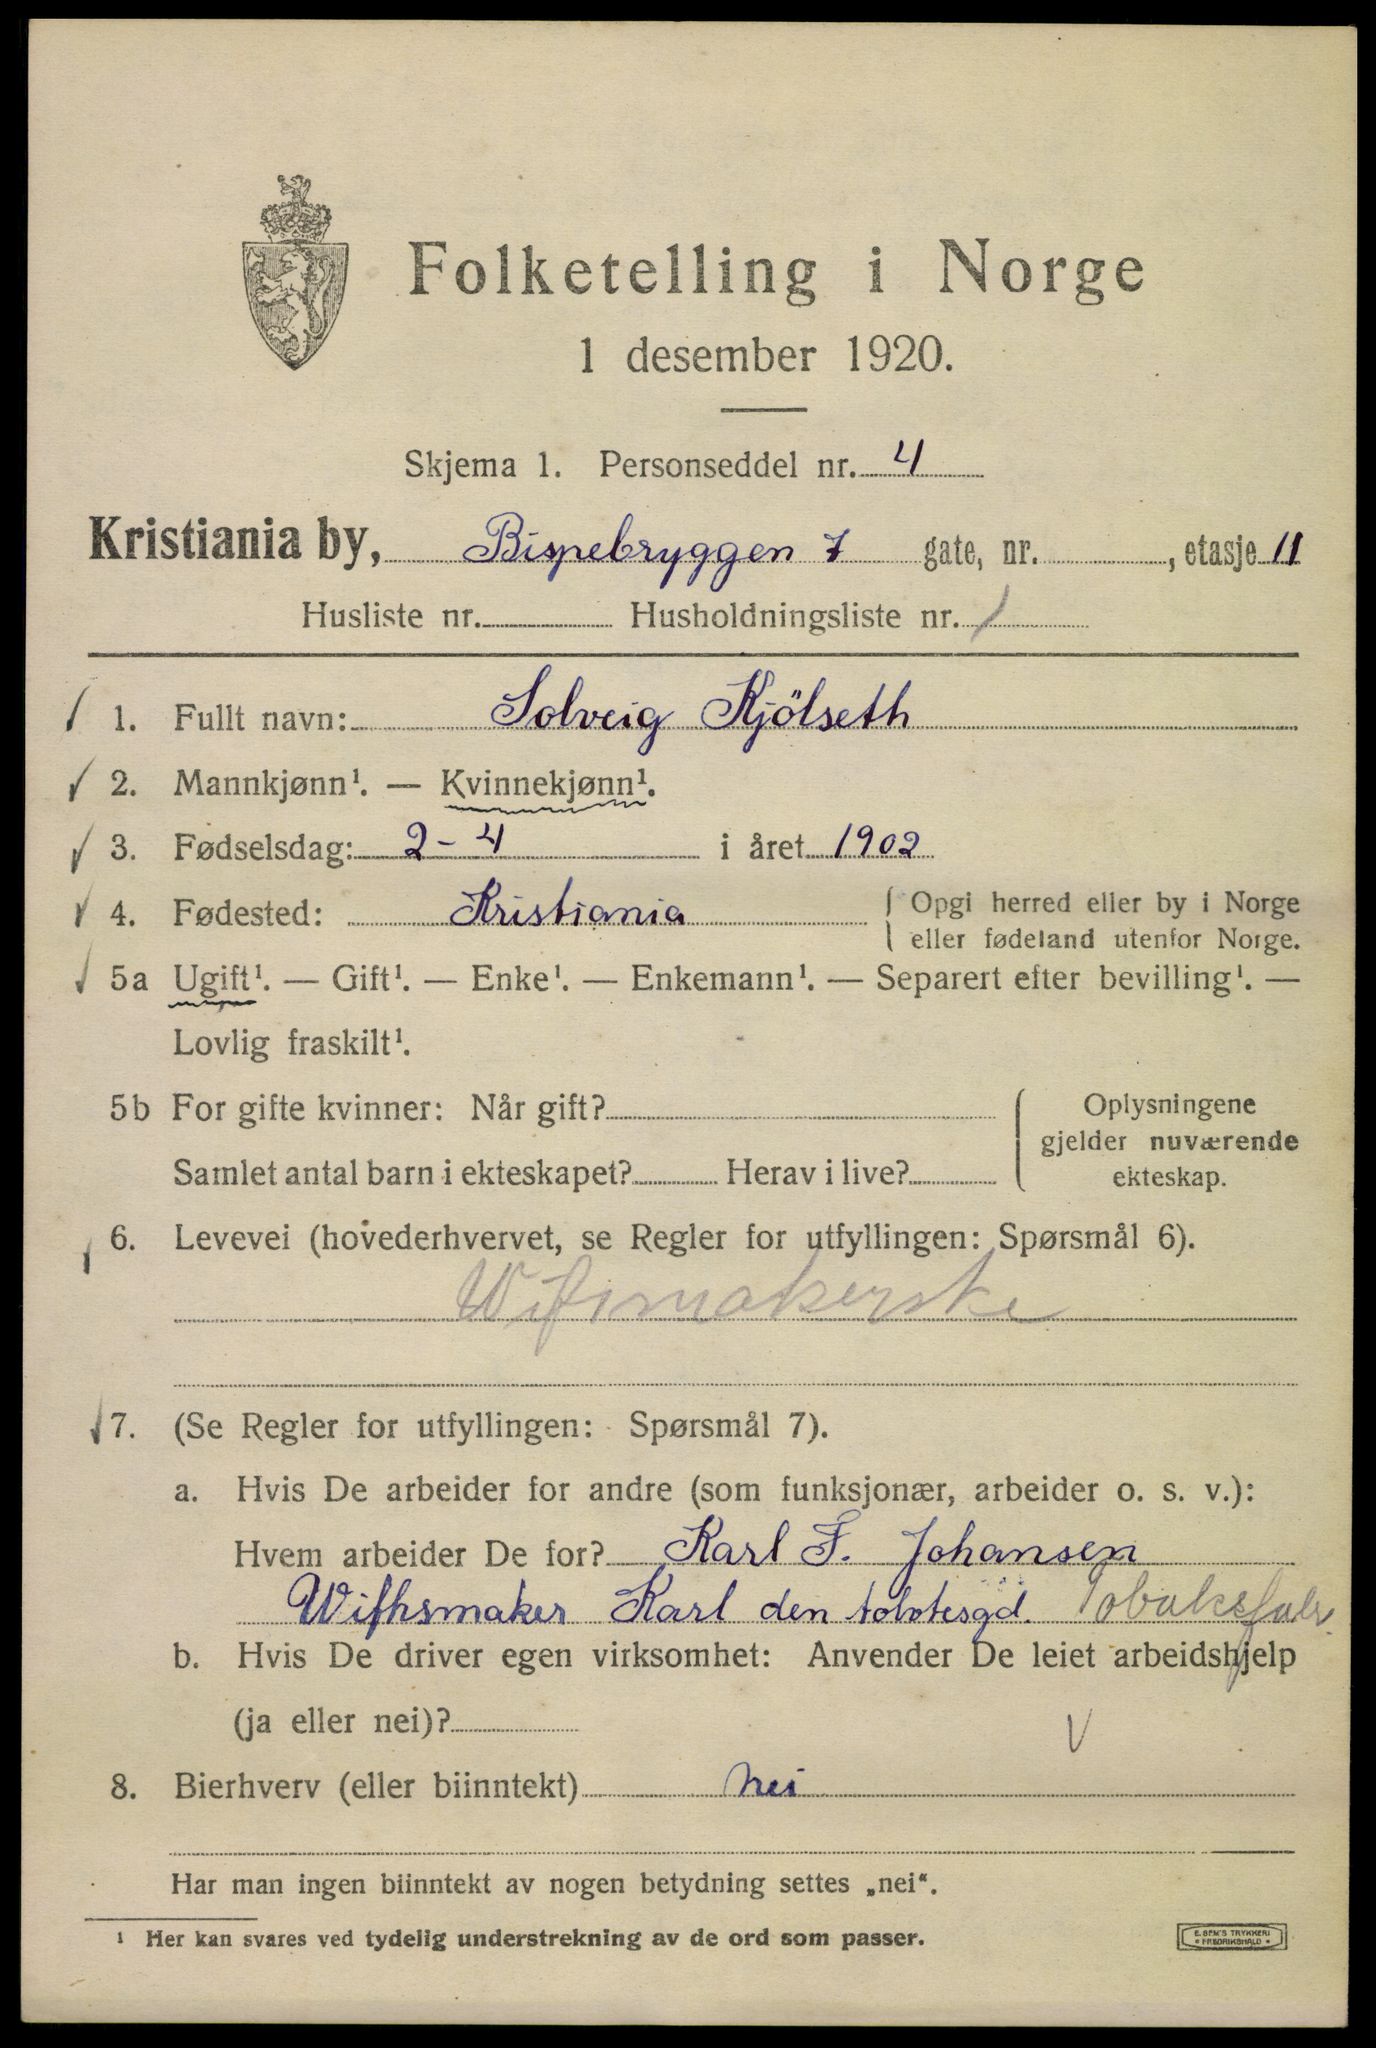 Folketelling i Norge
1 desember 1920.
Skjema 1. Personseddel nr. 4
Kristiania by, Bispebryggen 7 gate, nr. , etasje 11
Husliste nr. Husholdningsliste nr. 1
1. Fullt navn: Solveig Kjölseth
2. Mannkjønn¹. — Kvinnekjønn¹.
3. Fødselsdag: 2-4 i året 1902
4. Fødested: Kristiania { Opgi herred eller by i Norge
eller fødeland utenfor Norge.
5a Ugift¹. — Gift¹. — Enke¹. — Enkemann¹. — Separert efter bevilling¹. —
Lovlig fraskilt¹.
5b For gifte kvinner: Når gift? { Oplysningene
gjelder nuværende
Samlet antal barn i ekteskapet? Herav i live? ekteskap.
6. Levevei (hovederhvervet, se Regler for utfyllingen: Spørsmål 6).
Wifsmakerske
7. (Se Regler for utfyllingen: Spørsmål 7).
a. Hvis De arbeider for andre (som funksjonær, arbeider o. s. v.):
Hvem arbeider De for? Karl F. Johansen
Wifhsmaker Karl den tolvtesgd. Tobaksfabr.
b. Hvis De driver egen virksomhet: Anvender De leiet arbeidshjelp
(ja eller nei)?
8. Bierhverv (eller biinntekt) nei
Har man ingen biinntekt av nogen betydning settes „nei“.
¹ Her kan svares ved tydelig understrekning av de ord som passer.
E. SEM'S TRYKKERI
* FREDRIKSHALD *